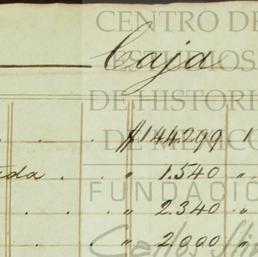 CENTRO DE
ESTUDIOS
Caja
DE HISTORIA
DE MÉXICO
$144.299 1
ada . " 1.540 "
FUNDACIÓ
" 2.340 "
" 2.000 "
Carlos Sli